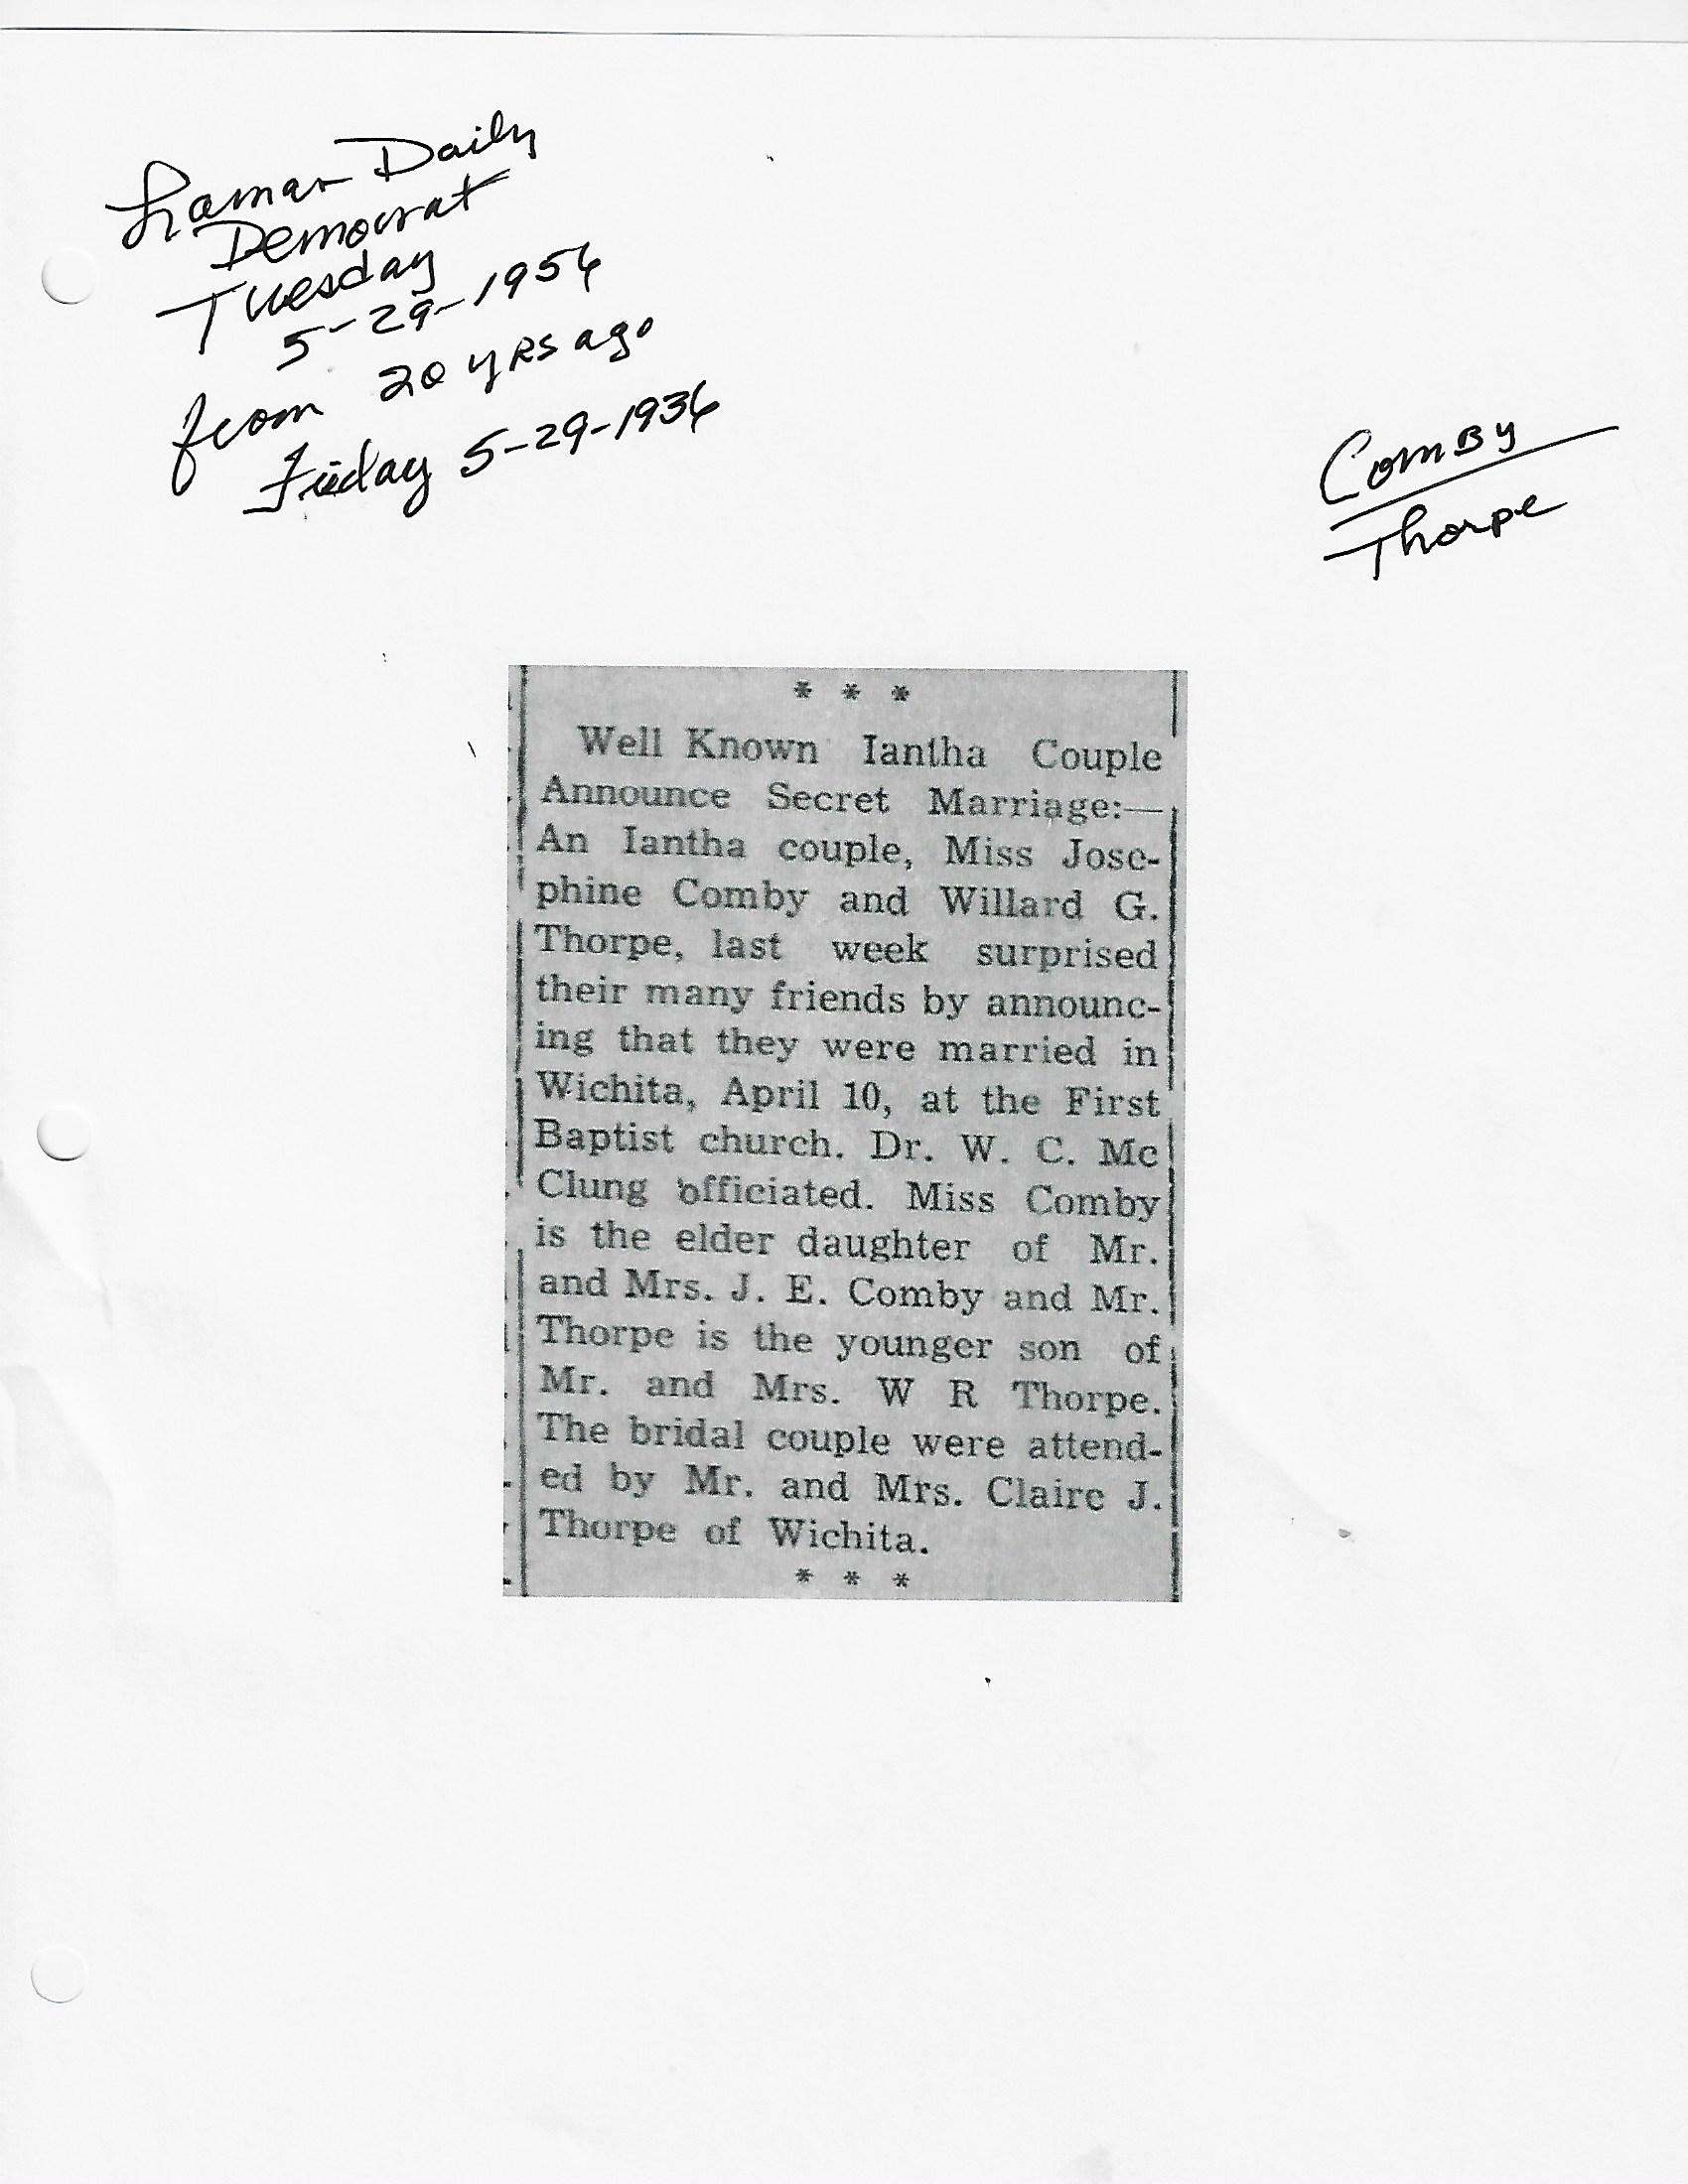 Lamar Daily
Democrat
Tuesday
5-29-1956
from 20 yrs ago
Friday 5-29-1936
ComBy
Thorpe
* * *
Well Known Iantha Couple
Announce Secret Marriage:—
An Iantha couple, Miss Jose-
phine Comby and Willard G.
Thorpe, last week surprised
their many friends by announc-
ing that they were married in
Wichita, April 10, at the First
Baptist church. Dr. W. C. Mc
Clung officiated. Miss Comby
is the elder daughter of Mr.
and Mrs. J. E. Comby and Mr.
Thorpe is the younger son of
Mr. and Mrs. W R Thorpe.
The bridal couple were attend-
ed by Mr. and Mrs. Claire J.
Thorpe of Wichita.
* * *